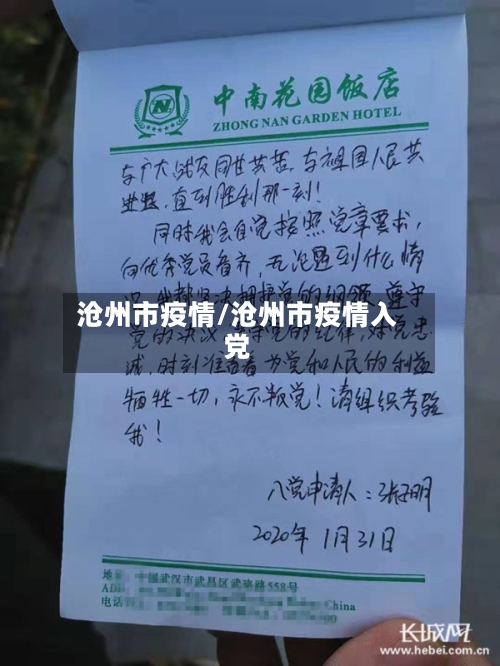 中南花园饭店
ZHONG NAN GARDEN HOTEL
与广大战友同甘共苦,与祖国人民共
直到胜利那一刻!
同时我会自觉按照党章要求,
向优秀党员看齐,无论遇到什么情
沧州市疫情/沧州市疫情入
党
诚,时刻准备着为党和人民的利益
牺牲一切,永不叛党!请组织考验
我!
入党申请人:张
明
2020年1月31日
中国武汉市武昌区武珞路558号
China
长城网
www.hebei.com.cn